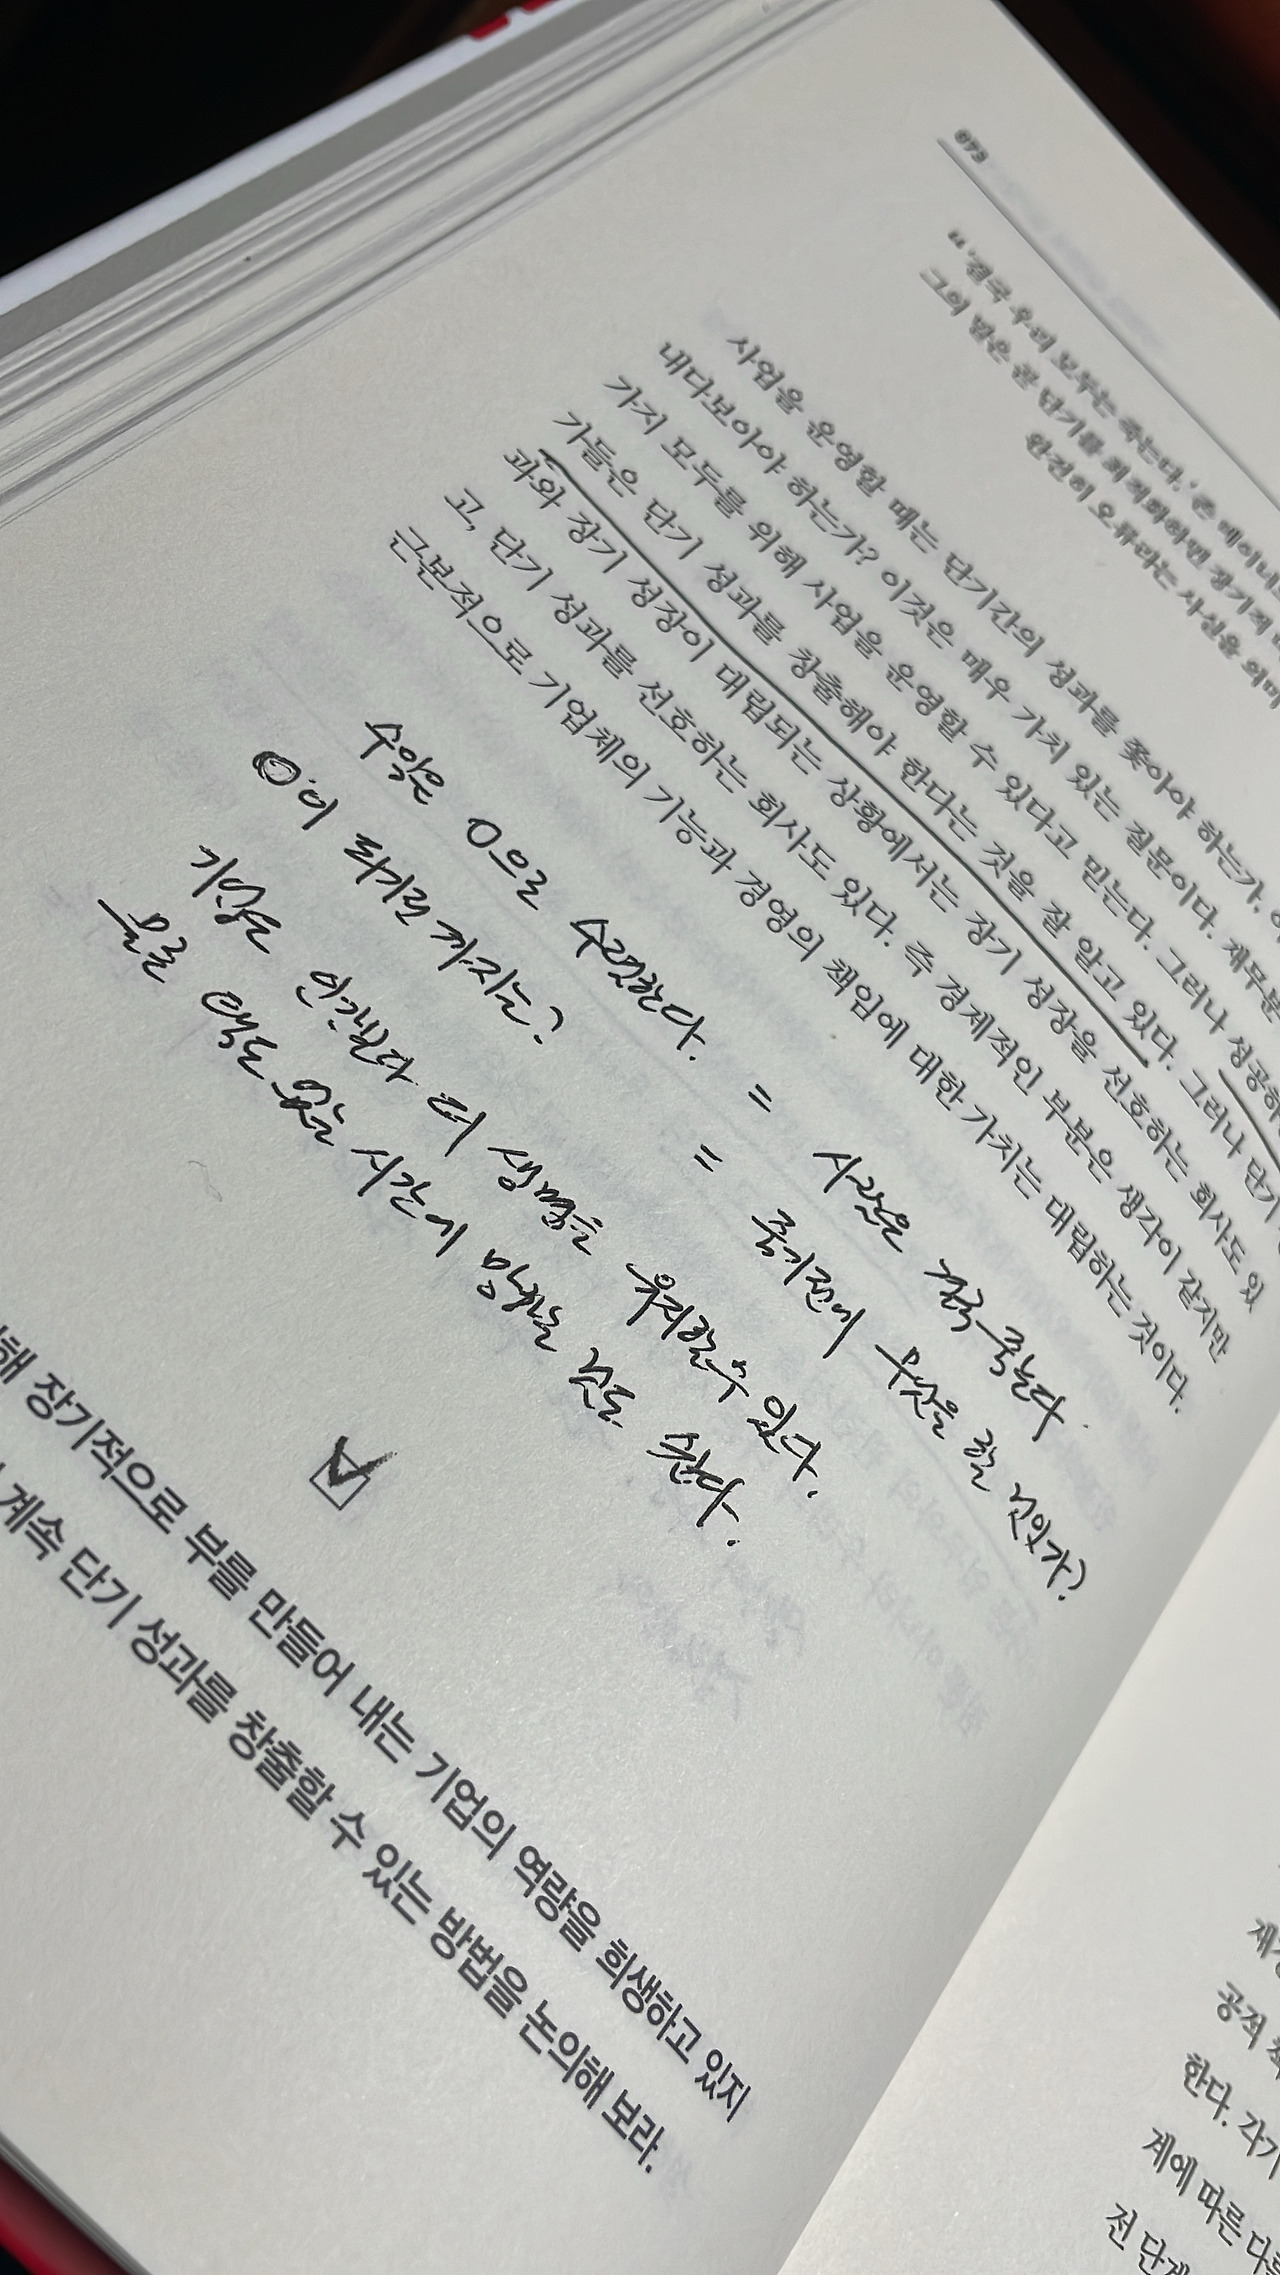 073
“ ‘결국 우리 모두는 죽는다.’ 존 메이너드
그의 말은 곧 단기를 최적화하면 장기적
완전히 오류라는 사실을 의미
사업을 운영할 때는 단기간의 성과를 쫓아야 하는가,
내다보아야 하는가? 이것은 매우 가치 있는 질문이다. 재무분
가지 모두를 위해 사업을 운영할 수 있다고 믿는다. 그러나 성공하
가들은 단기 성과를 창출해야 한다는 것을 잘 알고 있다. 그러나 단기
과와 장기 성장이 대립되는 상황에서는 장기 성장을 선호하는 회사도 있
고, 단기 성과를 선호하는 회사도 있다. 즉 경제적인 부분은 생각이 같지만
근본적으로 기업체의 기능과 경영의 책임에 대한 가치는 대립하는 것이다.
수익은 0으로 수렴한다. = 사람은 결국 죽는다.
0이 되기로 까지는? = 죽기전에 무엇을 할 것인가?
기업은 인간보다 더 생명을 유지할수 있다.
물론 택도 없는 시간에 망하는 것도 쉽다.
해 장기적으로 부를 만들어 내는 기업의 역량을 희생하고 있지
계속 단기 성과를 창출할 수 있는 방법을 논의해 보라.
공적
한다. 각기
계에 따른 다
전 단계